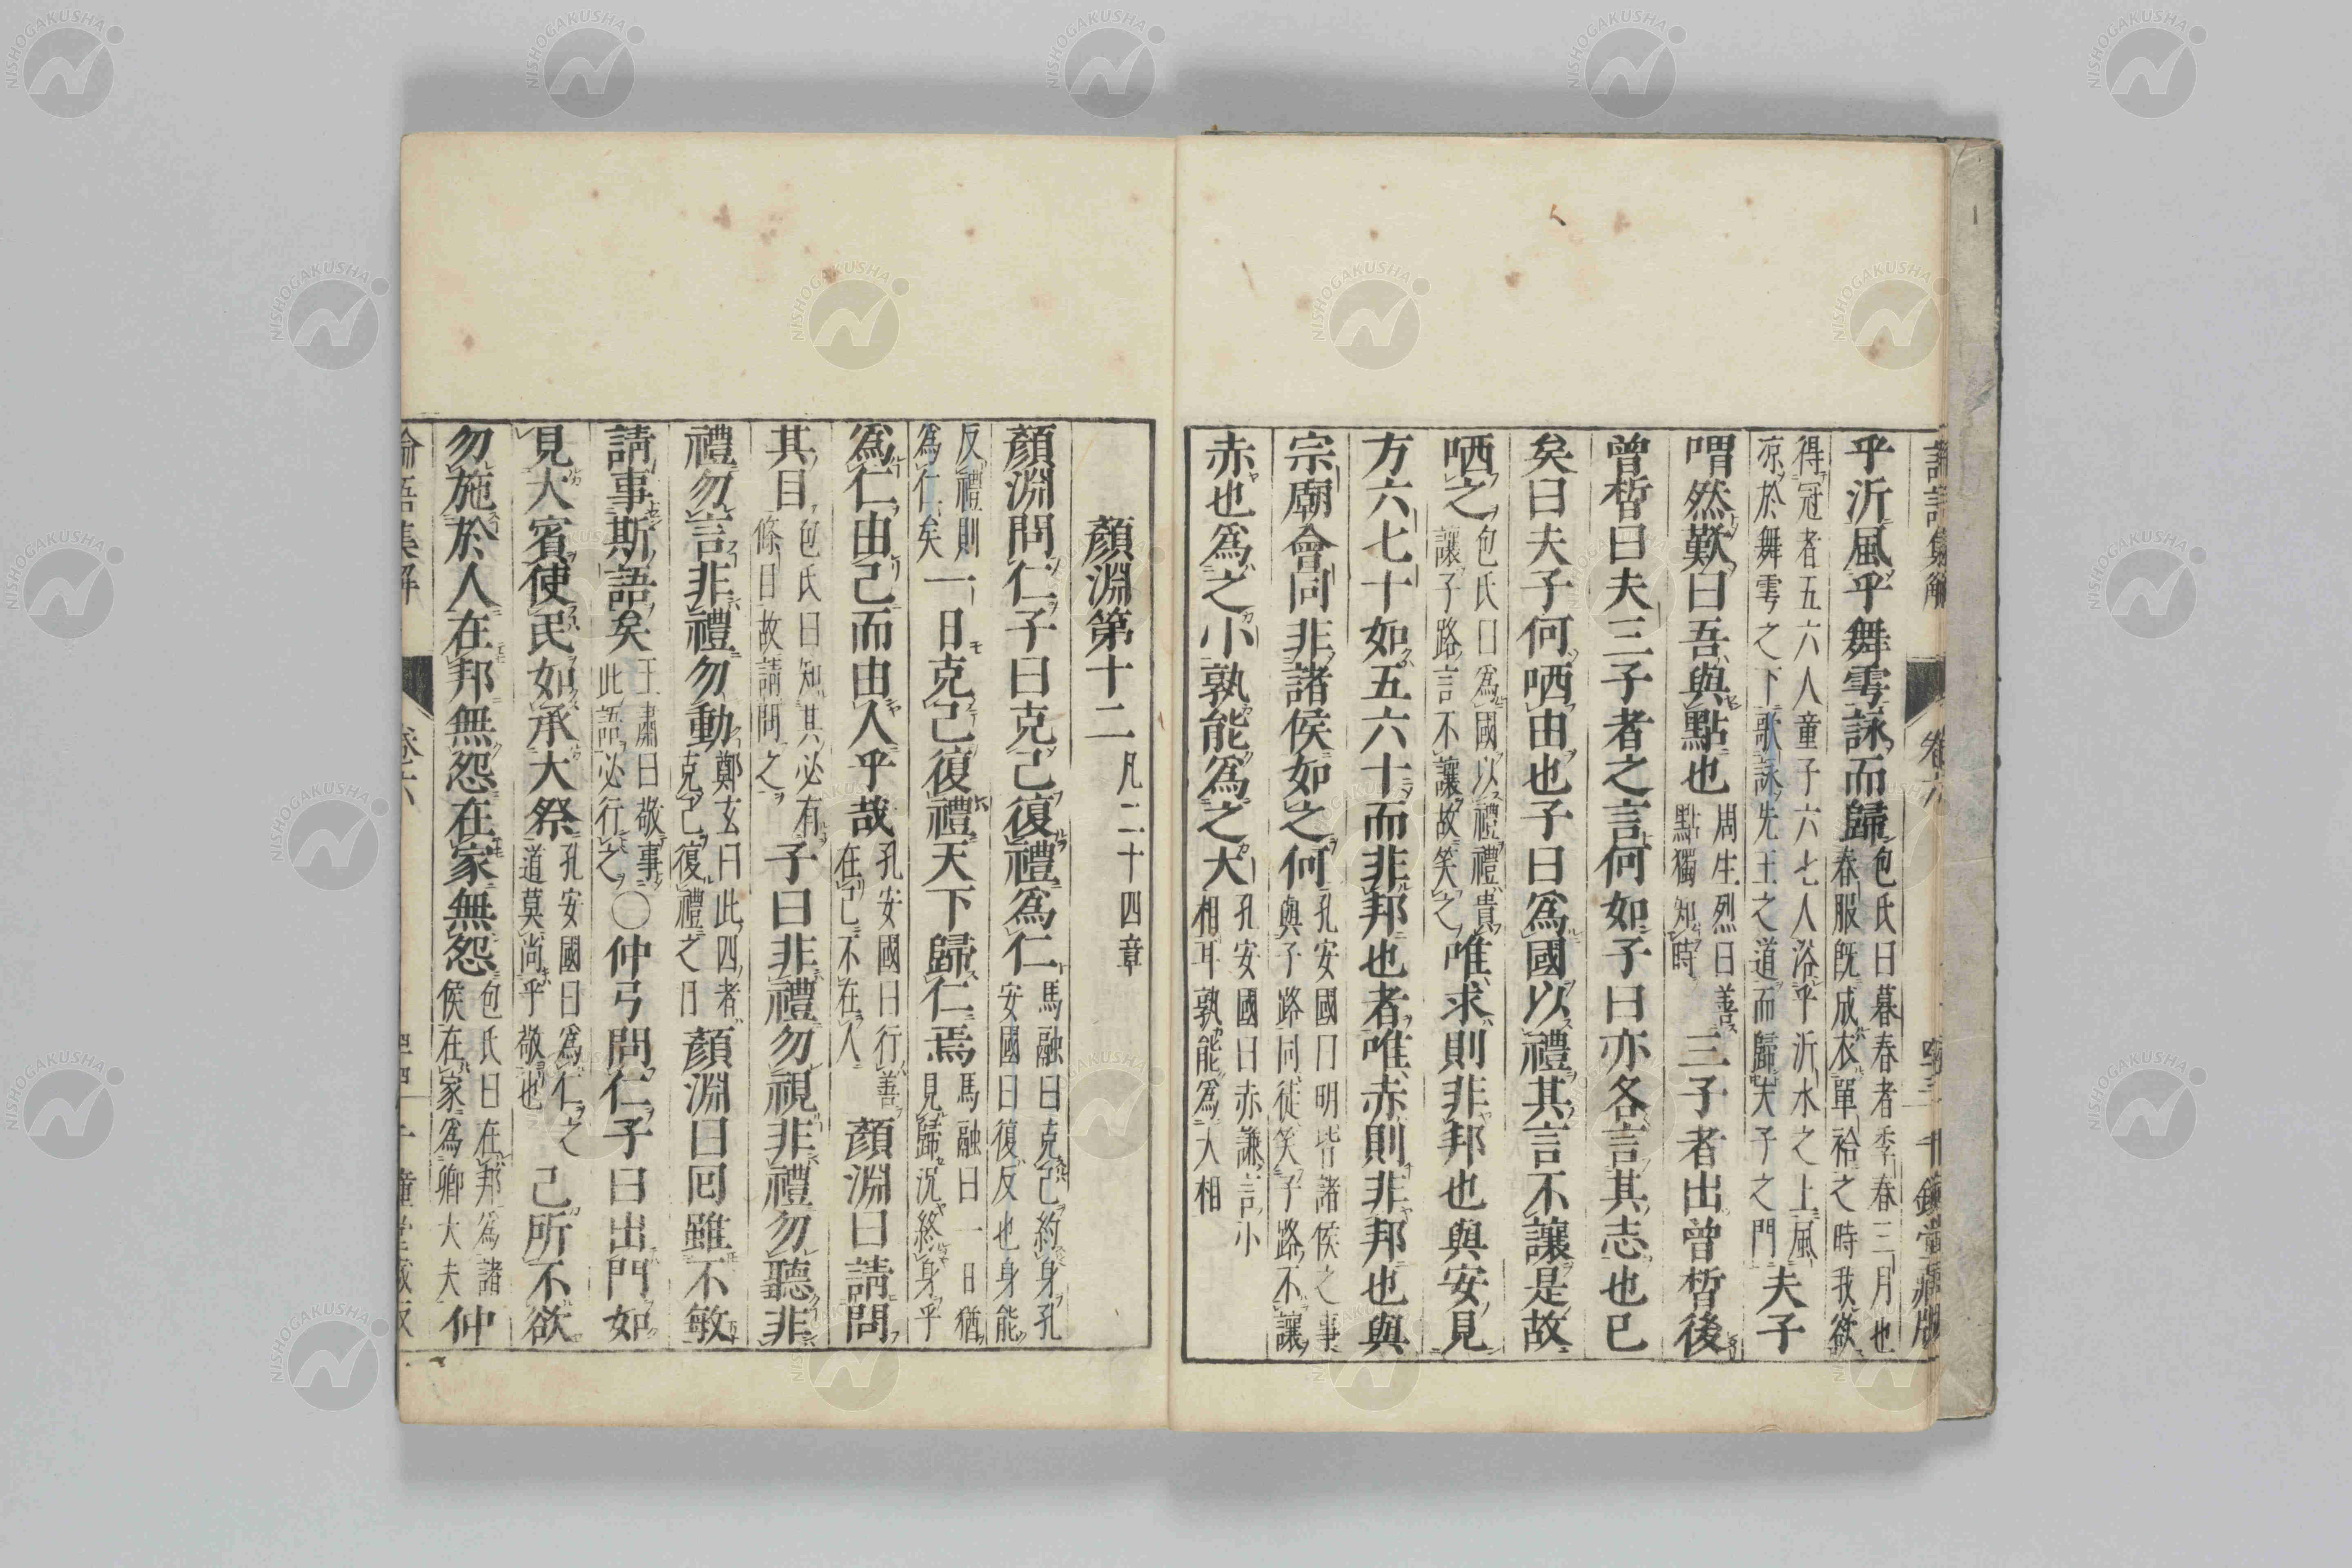 論語集解 卷六
乎沂風乎舞雩詠而歸包氏曰暮春者季春三月也春服既成衣單袷之時我欲
得冠者五六人童子六七人浴乎沂水之上風凉於舞雩之下歌詠先王之道而歸夫子之門夫子
喟然歎曰吾與點也周生烈曰善點獨知時三子者出曾皙後
曾皙曰夫三子者之言何如子曰亦各言其志也已
矣曰夫子何哂由也子曰爲國以禮其言不讓是故
哂之包氏曰爲國以禮禮貴讓子路言不讓故笑之唯求則非邦也與安見
方六七十如五六十而非邦也者唯赤則非邦也與
宗廟會同非諸侯如之何孔安國曰明皆諸侯之事與子路同徒笑子路不讓
赤也爲之小孰能爲之大孔安國曰赤謙言小相耳孰能爲大相
顏淵第十二凡二十四章
顏淵問仁子曰克己復禮爲仁馬融曰克己約身孔安國曰復反也身能
反禮則爲仁矣一日克己復禮天下歸仁焉馬融曰一日猶見歸況終身乎
爲仁由己而由人乎哉孔安國曰行善在己不在人顏淵曰請問
其目包氏曰知其必有條目故請問之子曰非禮勿視非禮勿聽非
禮勿言非禮勿動鄭玄曰此四者克己復禮之目顏淵曰回雖不敏
請事斯語矣王肅曰敬事此語必行之〇仲弓問仁子曰出門如
見大賓使民如承大祭孔安國曰爲仁之道莫尚乎敬也己所不欲
勿施於人在邦無怨在家無怨包氏曰在邦爲諸侯在家爲卿大夫仲
論語集解 卷六